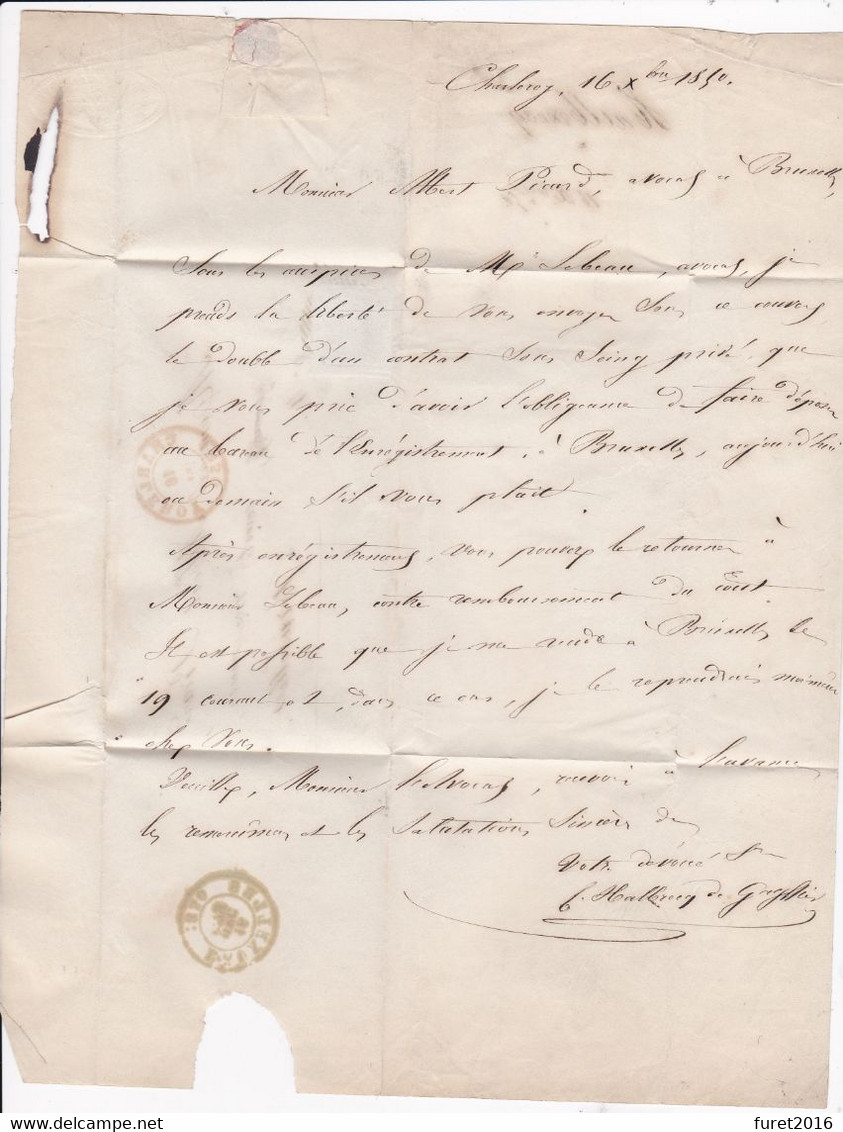 Charleroy, 16 Xbre 1850.
Monsieur Albert Picard, avocat à Bruxelles,
Sous les auspices de Mr Lebeau, avocat, je
prends la liberté de vous envoyer sous ce couvert
le double d'un contrat sous seing privé que
je vous prie d'avoir l'obligeance de faire déposer
au bureau de l'Enrégistrement, à Bruxelles, aujourd'hui
ou demain s'il vous plait.
Après enrégistrement, vous pouvez le retourner à
Monsieur Lebeau, contre remboursement du coût.
Il est possible que je me rende à Bruxelles le
19 courant et, dans ce cas, je le reprendrais moi-même
chez vous.
Veuillez, Monsieur l'Avocat, recevoir à l'avance
les remercîmens et les salutations sincères de
Votre dévoué Sr
furet2016